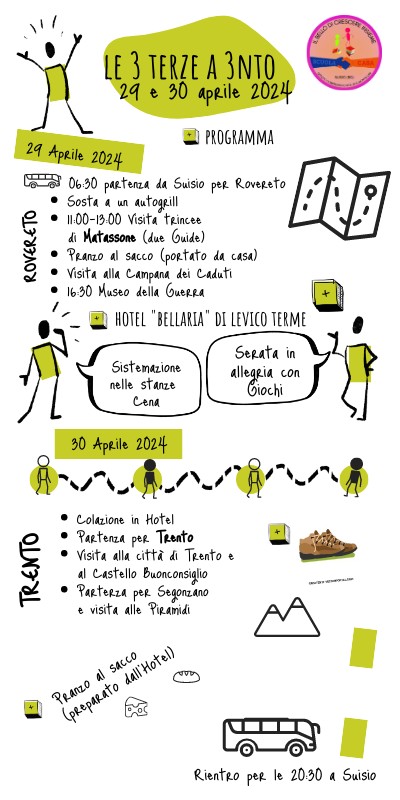 IL BELLO DI CRESCERE INSIEME
LE 3 TERZE A 3NTO
29 e 30 aprile 2024
PROGRAMMA
29 Aprile 2024
ROVERETO
06:30 partenza da Suisio per Rovereto
Sosta a un autogrill
11:00-13:00 Visita trincee
di Matassone (due Guide)
Pranzo al sacco (portato da casa)
Visita alla Campana dei Caduti
16:30 Museo della Guerra
HOTEL "BELLARIA" DI LEVICO TERME
Sistemazione
nelle stanze
Cena
Serata in
allegria con
Giochi
30 Aprile 2024
TRENTO
Colazione in Hotel
Partenza per Trento
Visita alla città di Trento e
al Castello Buonconsiglio
Partenza per Segonzano
e visita alle Piramidi
Pranzo al sacco
(preparato dall'Hotel)
Rientro per le 20:30 a Suisio